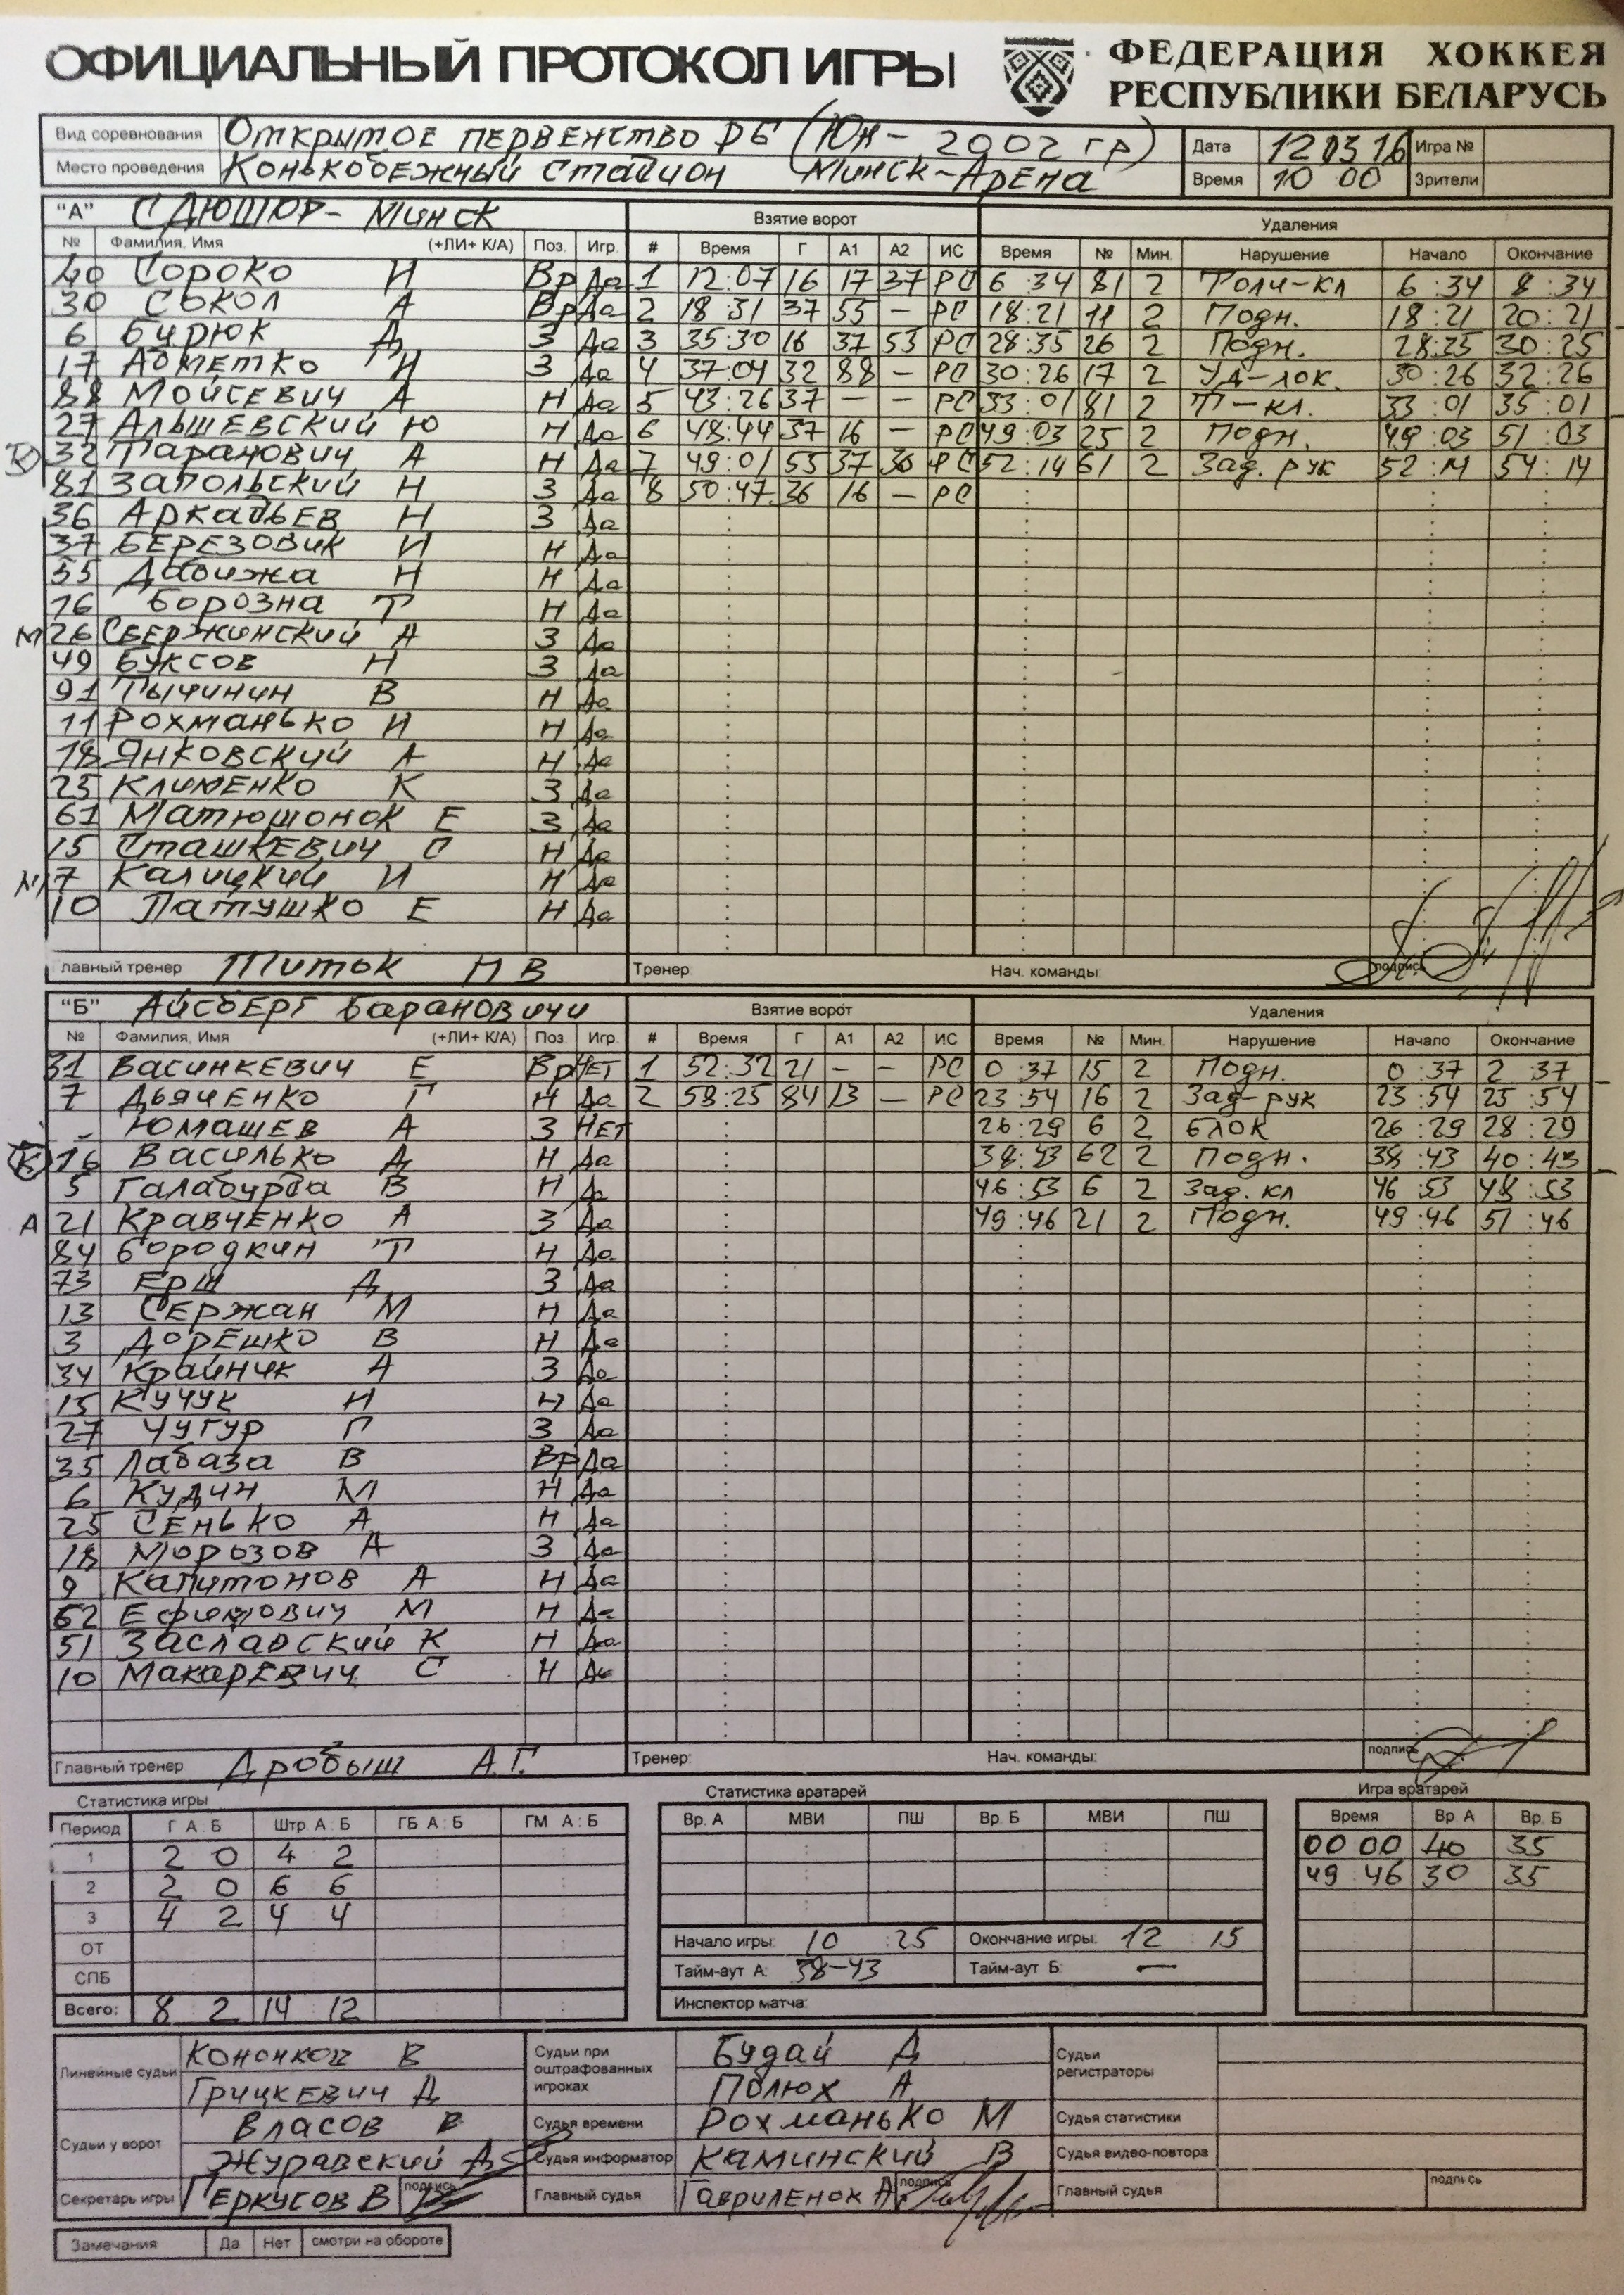 ОФИЦИАЛЬНЫЙ ПРОТОКОЛ ИГРЫ
ФЕДЕРАЦИЯ ХОККЕЯ
РЕСПУБЛИКИ БЕЛАРУСЬ
Вид соревнования Открытое первенство РБ (Юн - 2002 гр) Дата 12 03 16 Игра №
Место проведения Конькобежный стадион Минск-Арена Время 10 00 Зрители
"А" СДЮШОР - Минск Взятие ворот Удаления
№ Фамилия, Имя (+ЛИ+ К/А) Поз. Игр. # Время Г А1 А2 ИС Время № Мин. Нарушение Начало Окончание
40 Сороко И Вр Да 1 12:07 16 17 37 РС 6:34 81 2 Толч-кл 6:34 8:34
30 Сокол А Вр Да 2 18:31 37 55 - РС 18:21 11 2 Подн. 18:21 20:21
6 Бирюк Д З Да 3 35:30 16 37 53 РС 28:35 26 2 Подн. 28:25 30:25
17 Адметко И З Да 4 37:04 32 88 - РС 30:26 17 2 Уд-лок. 30:26 32:26
88 Мойсевич А Н Да 5 43:26 37 - - РС 33:01 81 2 Т-кл. 33:01 35:01
27 Альшевский Ю Н Да 6 48:44 37 16 - РС 49:03 25 2 Подн. 49:03 51:03
К 32 Таранович А Н Да 7 49:01 55 37 36 РС 52:14 61 2 Зад. рук 52:14 54:14
81 Запольский Н З Да 8 50:47 36 16 - РС
36 Аркадьев Н З Да
37 Березовик И Н Да
55 Дабижа Н Н Да
16 Борозна Т Н Да
М 26 Свержинский А З Да
49 Буксов Н З Да
91 Тычинин В Н Да
11 Рохманько И Н Да
18 Янковский А Н Да
25 Клименко К З Да
61 Матюшонок Е З Да
15 Сташкевич С Н Да
7 Калицкий И Н Да
10 Латушко Е Н Да
лавный тренер Титок Н В Тренер: Нач. команды: подпись
"Б" Айсберг Барановичи Взятие ворот Удаления
№ Фамилия, Имя (+ЛИ+ К/А) Поз. Игр. # Время Г А1 А2 ИС Время № Мин. Нарушение Начало Окончание
31 Васинкевич Е Вр Нет 1 52:32 21 - - РС 0:37 15 2 Подн. 0:37 2:37
7 Дьяченко Г Н Да 2 58:25 84 13 - РС 23:54 16 2 Зад-рук 23:54 25:54
- Юмашев А З Нет 26:29 6 2 Блок 26:29 28:29
К 16 Василько Д Н Да 38:43 62 2 Подн. 38:43 40:43
5 Галабурда В Н Да 46:53 6 2 Зад. кл 46:53 48:53
А 21 Кравченко А З Да 49:46 21 2 Подн. 49:46 51:46
84 Бородкин Т Н Да
73 Ерш Д З Да
13 Сержан М Н Да
3 Дорешко В Н Да
34 Крайник А З Да
15 Кучук Н Н Да
27 Чугур Г З Да
35 Лабаза В Вр Да
6 Кудин М Н Да
25 Сенько А Н Да
18 Морозов А З Да
9 Капитонов А Н Да
62 Ефимович М Н Да
51 Заславский К Н Да
10 Макаревич С Н Да
Главный тренер Дробыш А.Г. Тренер: Нач. команды: подпись
Статистика игры Статистика вратарей Игра вратарей
Период Г А : Б Штр. А : Б ГБ А : Б ГМ А : Б Вр. А МВИ ПШ Вр. Б МВИ ПШ Время Вр. А Вр. Б
1 2 0 4 2 00 00 40 35
2 2 0 6 6 49 46 30 35
3 4 2 4 4
ОТ Начало игры: 10 : 25 Окончание игры: 12 : 15
СПБ Тайм-аут А: 38-43 Тайм-аут Б: —
Всего: 8 2 14 12 Инспектор матча:
Линейные судьи Судьи при оштрафованных игроках Будай Д Судьи регистраторы
Грицкевич Д Полюх А
Судьи у ворот Власов В Судья времени Рохманько М Судья статистики
Журавский А Судья информатор Каминский В Судья видео-повтора
Секретарь игры Геркусов В подпись Главный судья Гавриленок А подпись Главный судья подпись
Замечания Да Нет смотри на обороте